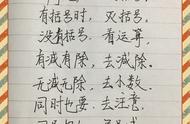 有括号时，灭括号，
没有括号，看运算，
有减有除，去减除，
无减无除，去小数，
同时也要，去注意，